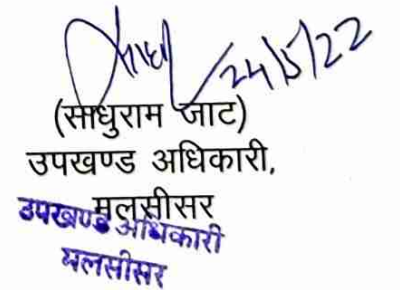 24/5/22
(साधुराम जाट)
उपखण्ड अधिकारी,
मलसीसर
उपखण्ड अधिकारी
मलसीसर